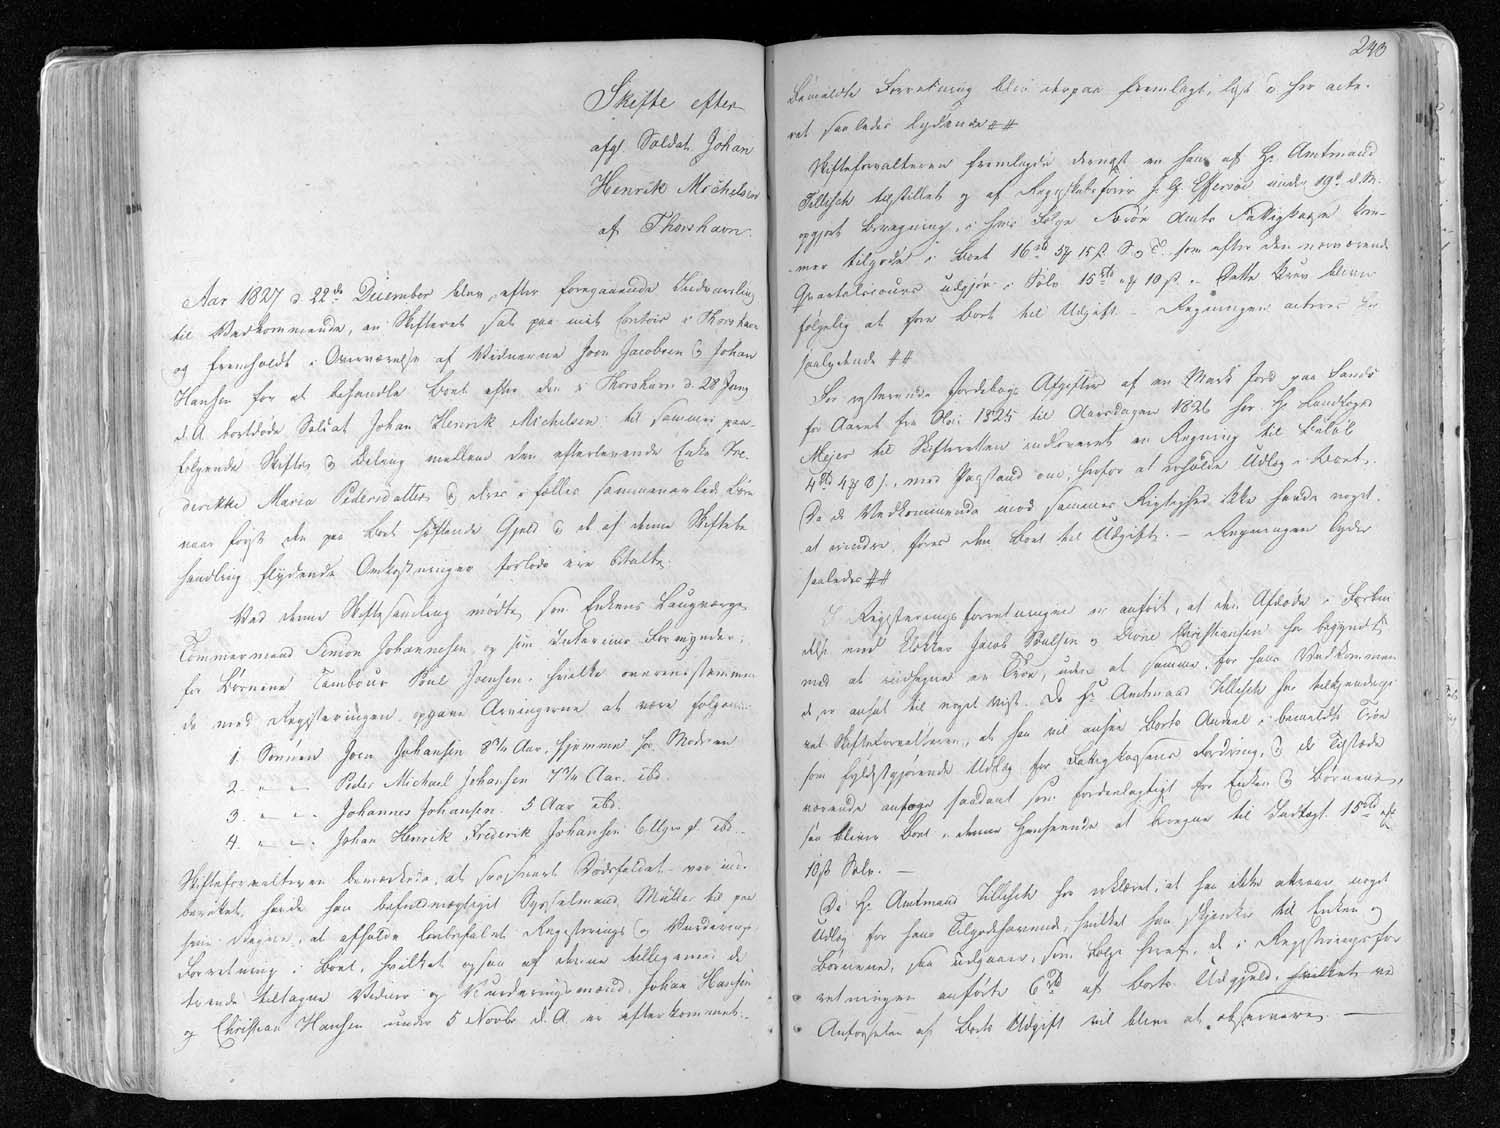 Skifte efter
afg. Soldat Johan
Henrik Michelsen
af Thorshavn.
Aar 1827 d. 22de December blev, efter foregaaende Indvarsling
til Vedkommende, en Skifteret sat paa mit Contoir i Thorshavn
og fremholdt i Overværelse af Vidnerne Joen Jacobsen & Johan
Hansen for at behandle Boet efter den i Thorshavn d. 28 Juny
d. A. bortdøde Soldat Johan Henrik Michelsen til sammes paa-
følgende Skifte & Deling mellem den efterlevende Enke Fre-
derikke Maria Pedersdatter & deres i fælles sammenavlede Børn
naar først den paa Boet hæftende Gjeld & de af denne Skiftebe-
handling flydende Omkostninger forlods ere betalte.
Ved denne Skiftesamling mødte som Enkens Laugværge
Tømmermand Simon Johannesen, og som Interims Formynder
for Børnene Tambour Poul Joensen, hvilke overeenstemmen-
de med Registeringen opgave Arvingerne at være følgende:
1. Sønnen Joen Johansen 8 3/4 Aar, hjemme hos Moderen
2. " " Peder Michael Johansen 7 1/4 Aar. ibd.
3. " " Johannes Johansen 5 Aar ibd.
4. " " Johan Henrik Frederik Johansen 6 Uger gl. ibd.
Skifteforvalteren bemærkede, at saasnart Dødsfaldet var ind-
berettet, havde han befuldmægtiget Sysselmand Müller til paa
hans Vegne, at afholde lovbefalet Registerings & Vurderings
Forretning i Boet, hvilket ogsaa af denne tilligemed de
tvende tiltagne Vidner og Vurderingsmænd, Johan Hansen
og Christian Hansen under 5 Novbr. d. A. er efterkommet.
243
Bemeldte Forretning blev derpaa fremlagt, læst & her acte-
ret saaledes lydende ##
Skifteforvalteren fremlagde dernæst en ham af Hr Amtmand
Tillisch tilstillet og af Regnskabsfører H. G. Effersøe under 19d d. M.
opgjort Beregning, i hvis Følge Færøe Amts Fattigkasse kom-
mer tilgode i Boet 16 rbd 5 mk 15 s S. & T. som efter den nærværende
Qvartalscours udgjør i Sølv 15 rbd 4 mk 10 s. - Dette Krav bliver
følgelig at føre Boet til Udgift. - Regningen acteres her
saalydende ##
For resterende Jordebogs Afgifter af en Mark Jord paa Sands
for Aaret fra 1825 til Aarsdagen 1826 har Hr Landfoged
Mejer til Skifteretten indleveret en Regning til Beløb
4 rbd 4 mk 8 s, med Paastand om, herfor at erholde Udlæg i Boet.
Da de Vedkommende mod sammes Rigtighed ikke havde noget
at erindre, føres den Boet til Udgift. - Regningen lyder
saaledes ##
I Registeringsforretningen er anført, at den Afdøde i Forbin-
delse med Klokker Jacob Poulsen & Christiansen har begyndt
med at indhegne en Trøe, uden at samme, for hans Vedkommen-
de, er ansat til noget vist. Da Hr Amtmand Tillisch har tilkjendegi-
vet Skifteforvalteren, at han vil ansee Boets Andeel i bemeldte Trøe
som fyldestgjørende Udlæg for Fattigkassens Fordring, & de Tilstede-
værende ansaae saadant som fordeelagtigt for Enken & Børnene,
saa bliver Boet i denne Henseende at beregne til Indtægt 15 rbd 4 mk
10 s Sølv. -
Da Hr Amtmand Tillisch har erklæret, at han ikke attraaer noget
Udlæg for hans Tilgodehavende, hvilket han skjenker til Enken og
Børnene, saa udgaaer, som Følge heraf, de i Registeringsfor-
retningen anførte 6 rbd af Boets Udgjeld, hvilket ved
Anførselen af Boets Udgift vil blive at observere. -